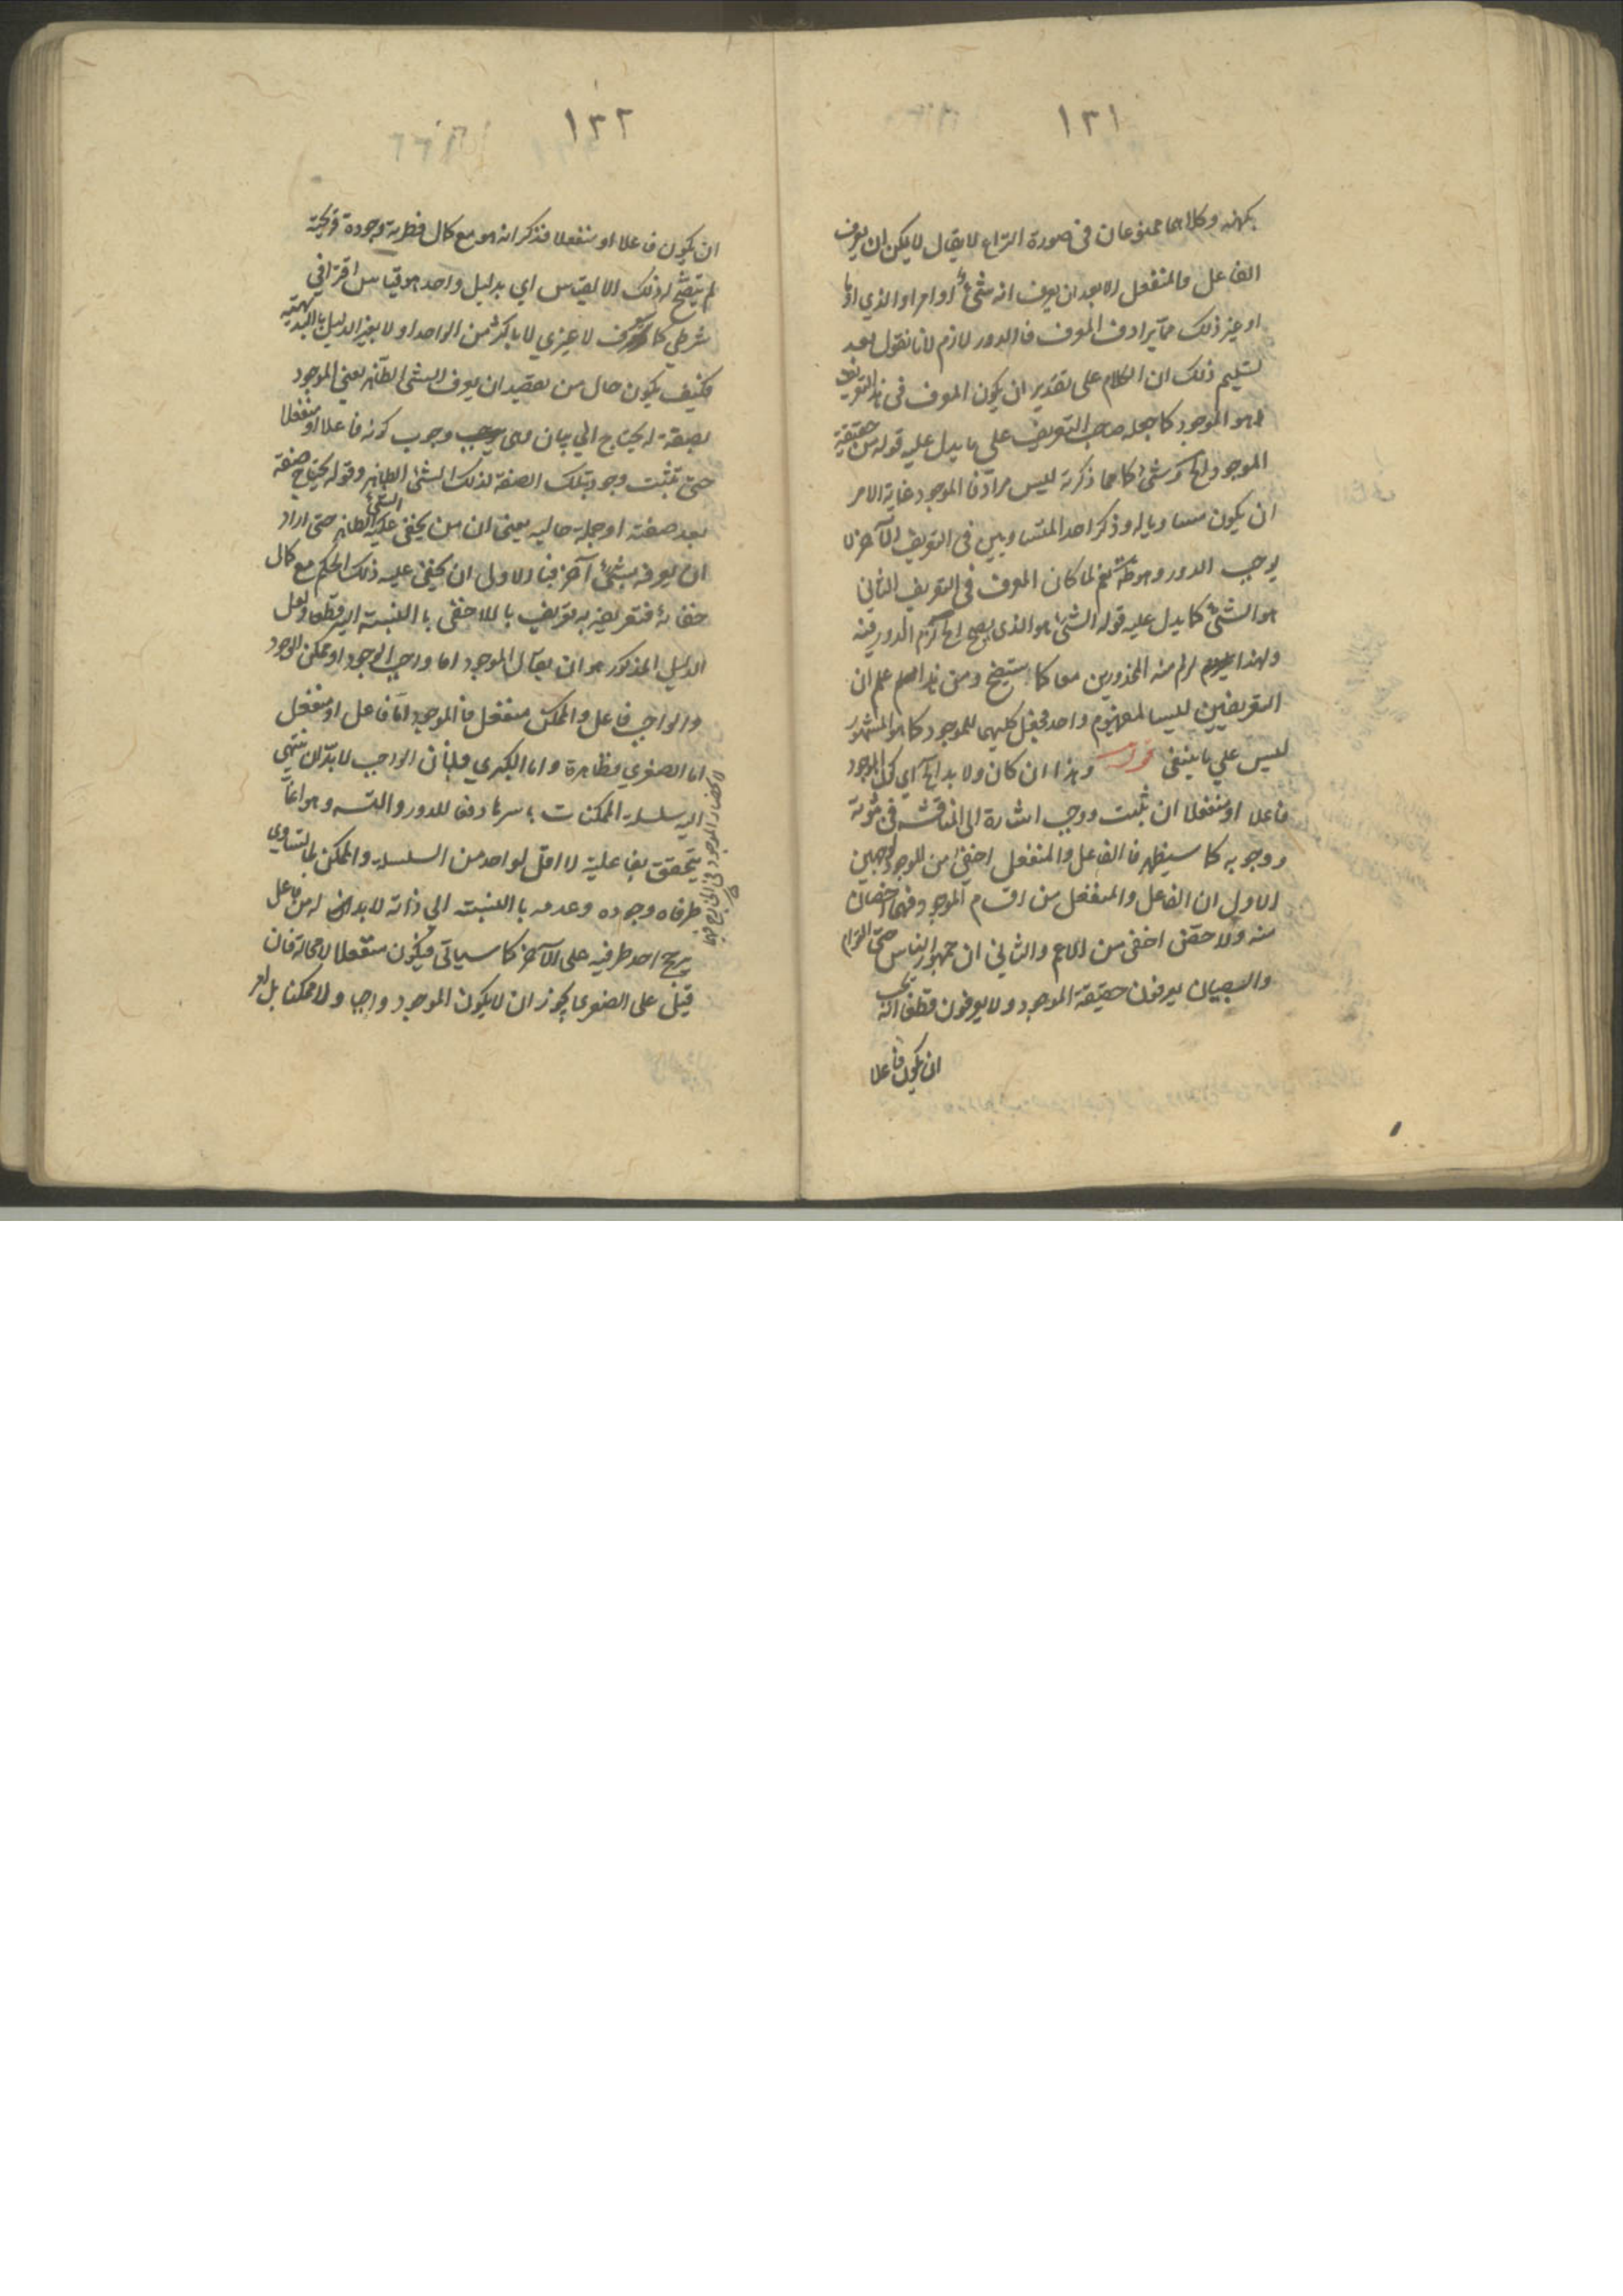 ١٣١
بكنهه وكلاهما ممنوعان فى صورة النزاع لا يقال لا يمكن ان يعرف
الفاعل والمنفعل الا بعد ان يعرف انه شئ او امر او الذي او ما
او غير ذلك مما يرادف المعرف فالدور لازم لانا نقول بعد
تسليم ذلك ان الكلام على تقدير ان يكون المعرف فى هذا التعريف
هو الموجود كما جعله صاحب التعريف على ما يدل عليه قوله من حقيقة
الموجود الخ وشئ كما مما ذكرته ليس مرادفا الموجود غاية الامر
ان يكون مساويا له وذكر احد المتساويين فى التعريف الآخر لا
يوجب الدور وهو ظ نعم لما كان المعرف فى التعريف الثاني
هو الشئ كما يدل عليه قوله الشئ هو الذى يصح الخ لزم الدور فيه
ولهذا لزم منه المحذورين معا كما ستيضح ومن هذا علم ان
التعريفين ليسا لمفهوم واحد فجعل كليهما للموجود كما هو المشهور
ليس علي ما ينبغى قوله وهذا ان كان ولا بد الخ اي كون الموجود
فاعلا او منفعلا ان ثبت ووجب اشارة الى المناقشة فى ثبوته
ووجوبه كما سيظهر فالفاعل والمنفعل اخفى من الموجود لوجهين
الاول ان الفاعل والمنفعل من اقسام الموجود فهما اخصان
منه والاخص اخفى من الاعم والثاني ان جمهور الناس حتى العوام
والصبيان يعرفون حقيقة الموجود ولا يعرفون قطعا انه يجب
ان يكون فاعلا
١٣٢
ان يكون فاعلا او منفعلا فذكر انه هو مع كمال فطرته وجودة قريحته
لم يتضح له ذلك الا لقياس اي بدليل واحد هو قياس اقتراني
شرطي كما ستعرف لا غيري لا باكثر من الواحد او لا بغير الدليل بالبديهية
فكيف يكون حال من يقصد ان يعرف الشئ الظاهر يعني الموجود
بصفة له يحتاج الي بيان وهى وجوب كونه فاعلا او منفعلا
حتى تثبت وجود تلك الصفة لذلك الشئ الظاهر وقوله يحتاج صفة
بعد صفته او جملة حالية يعنى ان من يخفى عليه الشئ الظاهر حتى اراد
ان يعرفه بشئ آخر فبالاولى ان يخفى عليه ذلك الحكم مع كمال
خفائه فتعريضه به تعريف بالاخفى بالنسبة اليه قطعا ولعل
الدليل المذكور هو ان يقال الموجود اما واجب الوجود او ممكن الوجود
والواجب فاعل والممكن منفعل فالموجود اما فاعل او منفعل
اما الصغري فظاهرة واما الكبري فلان الواجب لا بد ان ينتهي
اليه سلسلة الممكنات باسرها دفعا للدور والتسه وهو انما
يتحقق بفاعلية لا اقل لواحد من السلسلة والممكن لما تساوى
طرفاه وجوده وعدمه بالنسبة الى ذاته لا بد له من فاعل
يرجح احد طرفيه على الآخر كما سياتى فيكون منفعلا لا محالة فان
قيل على الصغرى يجوز ان لا يكون الموجود واجبا ولا ممكنا بل
لانحصار الموجود فى الخارج فيهما